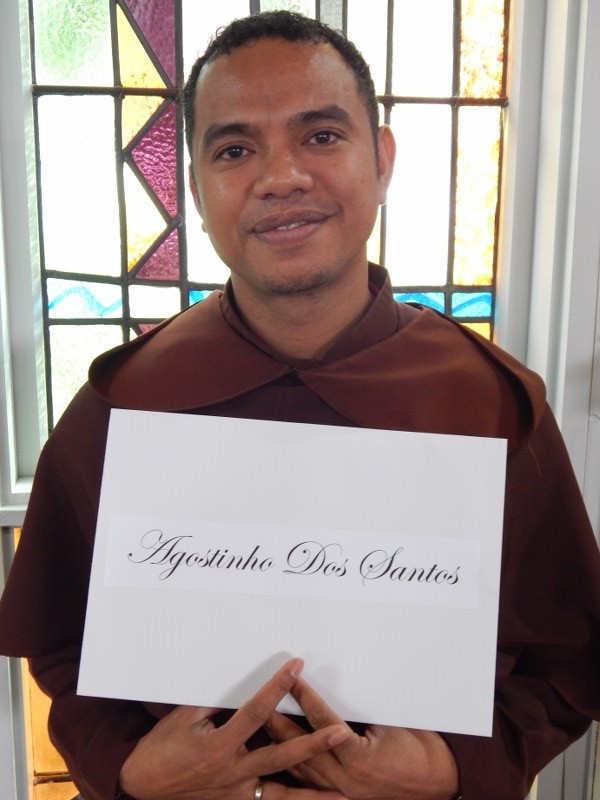 Agostinho Dos Santos